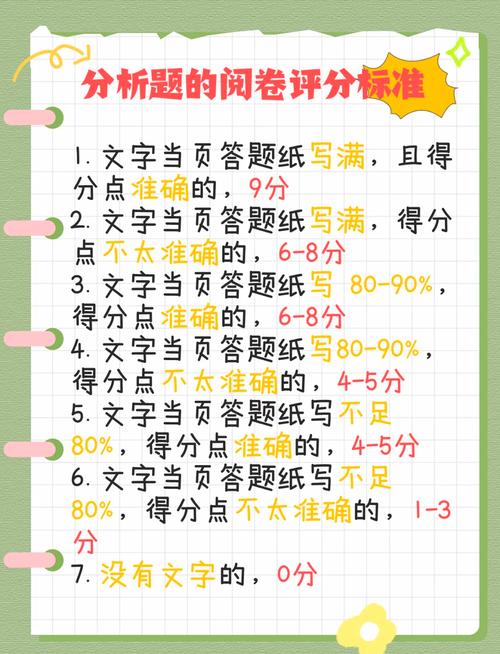 分析题的阅卷评分标准
1. 文字当页答题纸写满，且得
分点准确的，9分
2. 文字当页答题纸写满，得分
点不太准确的，6-8分
3. 文字当页答题纸写 80-90%，
得分点准确的，6-8分
4. 文字当页答题纸写80-90%，
得分点不太准确的，4-5分
5. 文字当页答题纸写不足
80%，得分点准确的，4-5分
6. 文字当页答题纸写不足
80%，得分点不太准确的，1-3
分
7. 没有文字的，0分